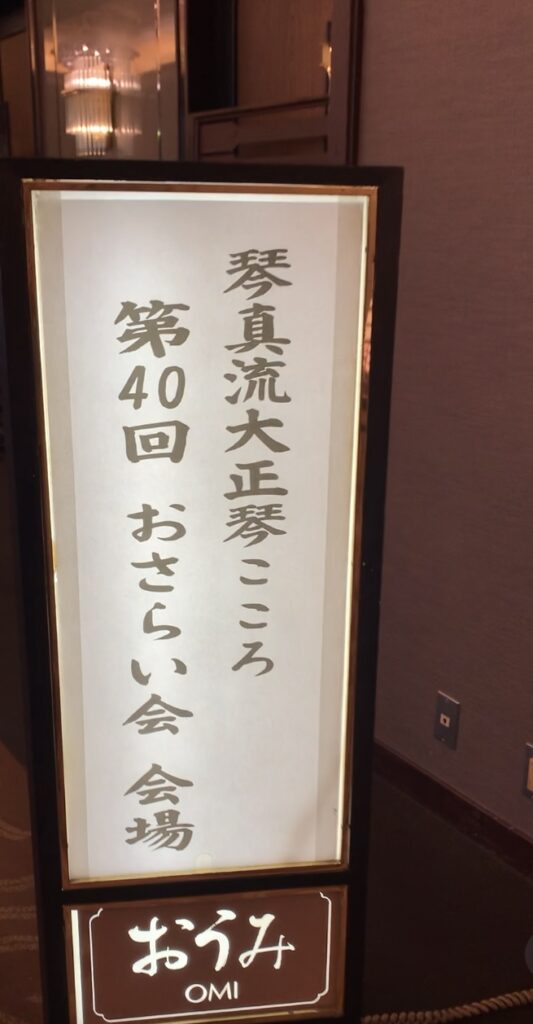 琴真流大正琴こころ
第40回 おさらい会 会場
おうみ
OMI